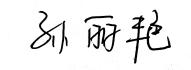 孙丽艳